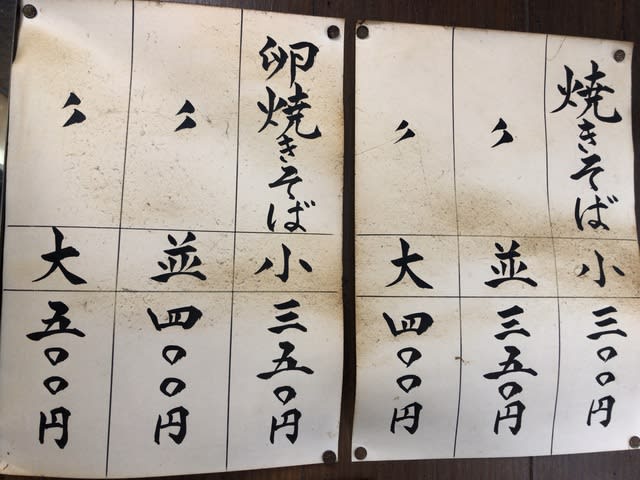 焼きそば 小 三〇〇円
〃 並 三五〇円
〃 大 四〇〇円
卵焼きそば 小 三五〇円
〃 並 四〇〇円
〃 大 五〇〇円